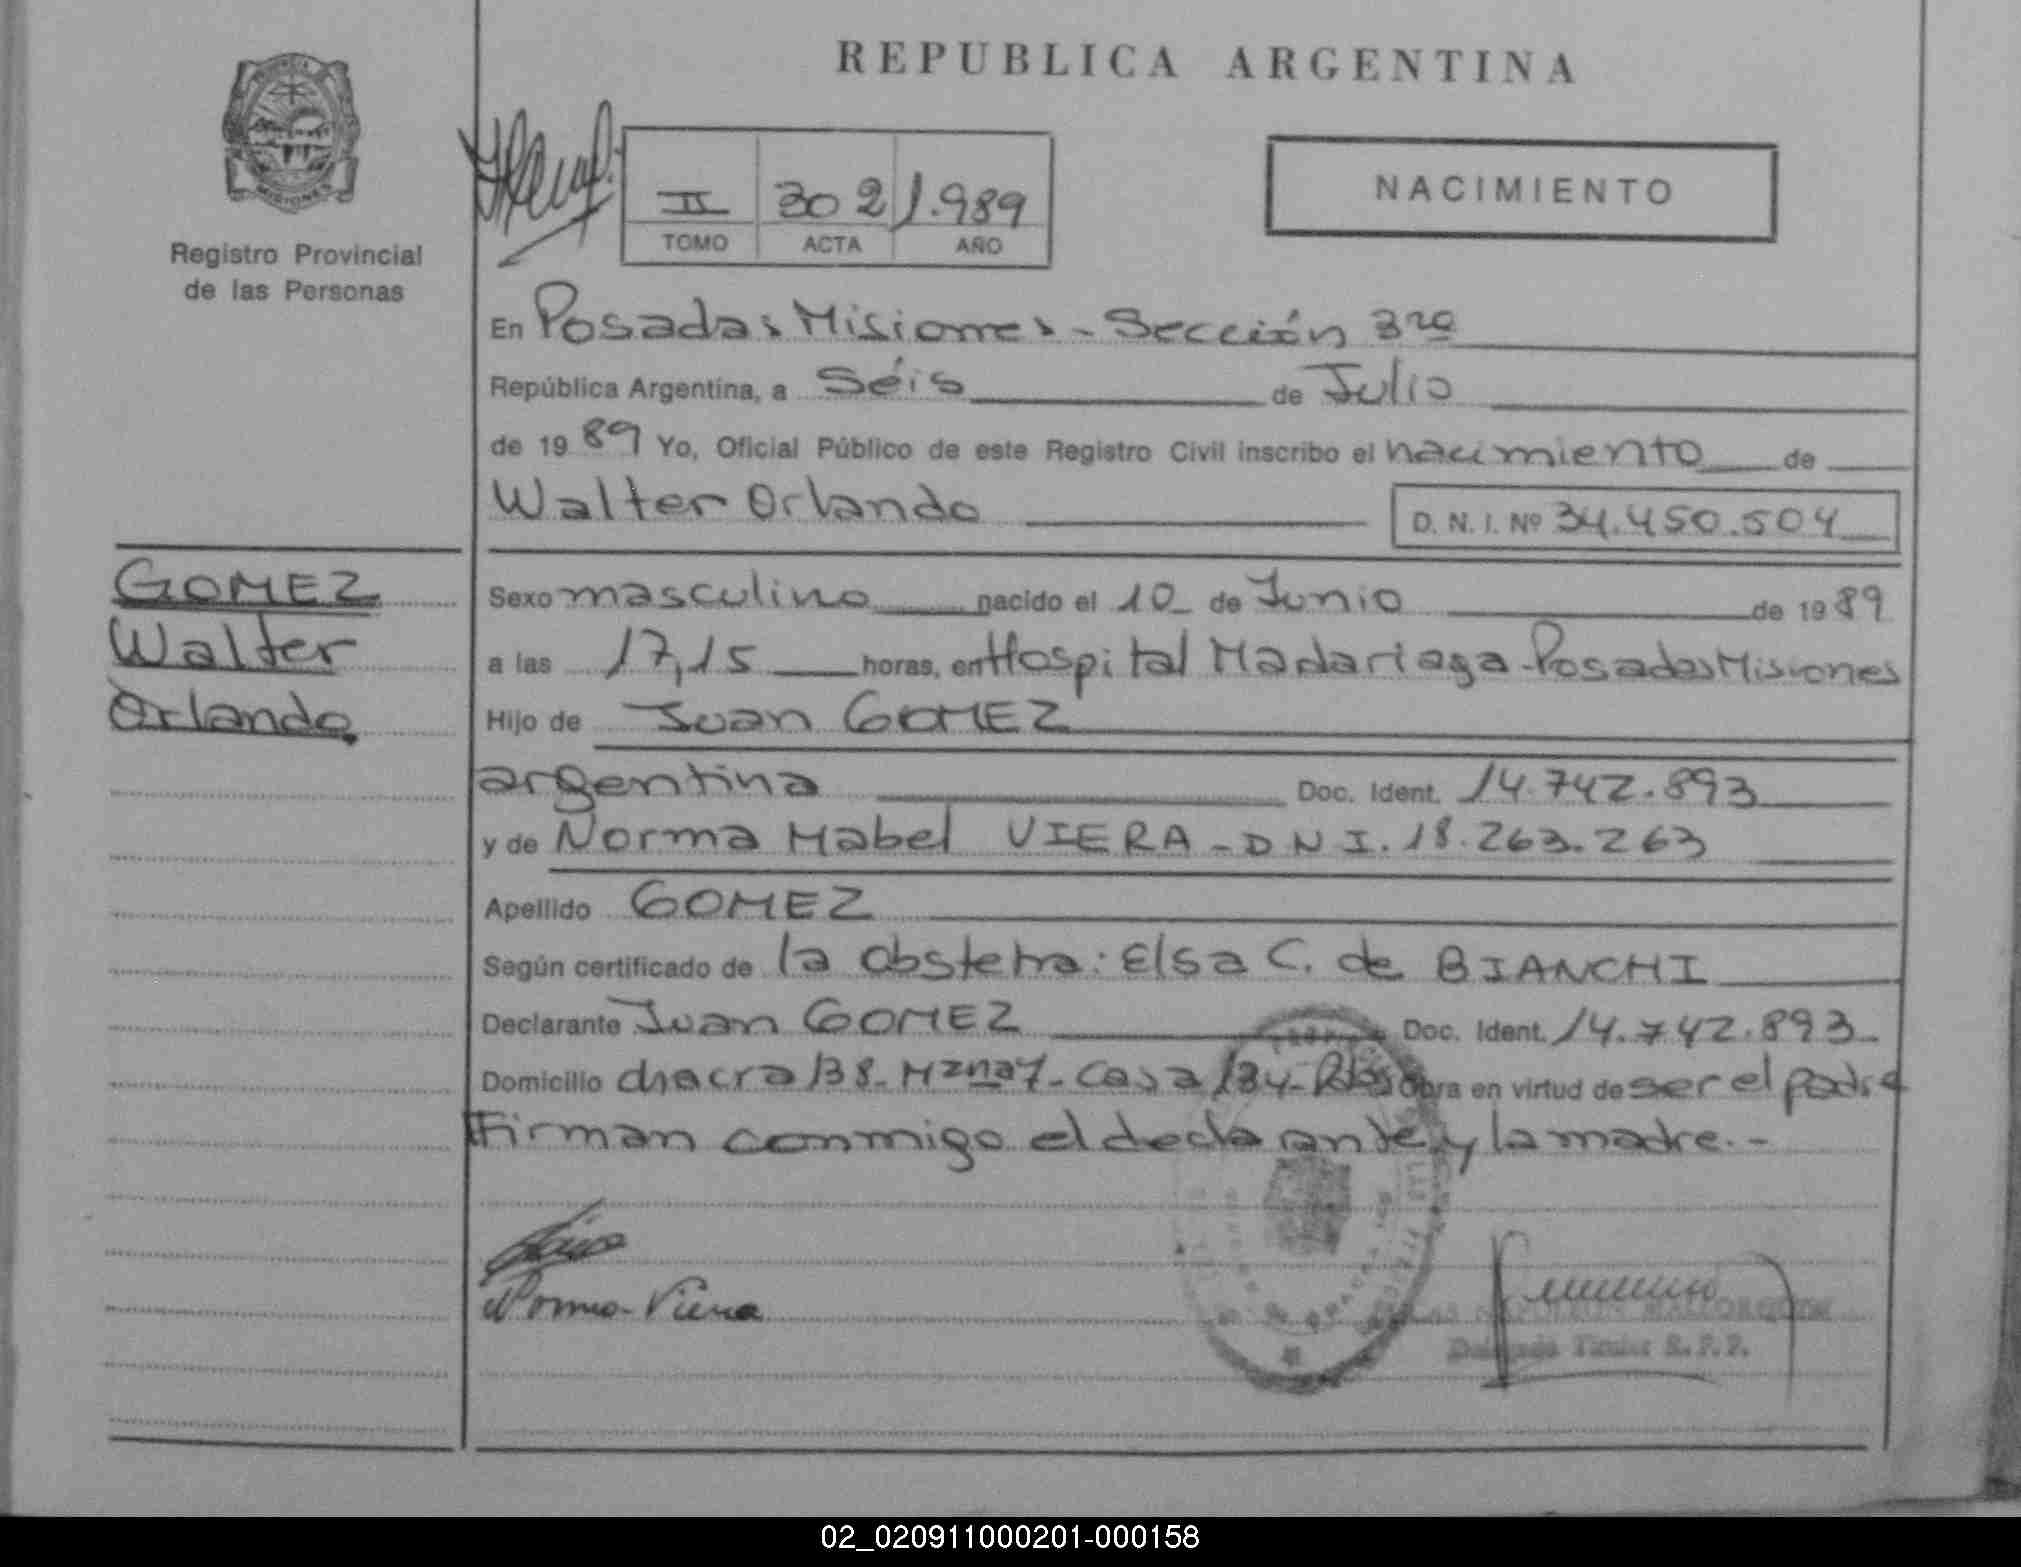 REPUBLICA ARGENTINA
MISIONES
Registro Provincial
de las Personas
II 302 1.989
TOMO ACTA AÑO
NACIMIENTO
En Posadas Misiones - Sección 3ra
República Argentina, a Séis de Julio
de 1989 Yo, Oficial Público de este Registro Civil inscribo el nacimiento de
Walter Orlando D. N. I. Nº 34.450.504
GOMEZ
Walter
Orlando
Sexo masculino nacido el 10 de Junio de 1989
a las 17,15 horas, en Hospital Madariaga - Posadas Misiones
Hijo de Juan GOMEZ
argentina Doc. Ident. 14.742.893
y de Norma Mabel VIERA - DNI. 18.263.263
Apellido GOMEZ
Según certificado de la obstetra: Elsa C. de BIANCHI
Declarante Juan GOMEZ Doc. Ident. 14.742.893
Domicilio chacra 138 - Mzna 7 - Casa 134 - Pdas Obra en virtud de ser el padre
Firman conmigo el declarante y la madre. -
Norma Viera
Delegado Titular R.P.P.
02_020911000201-000158